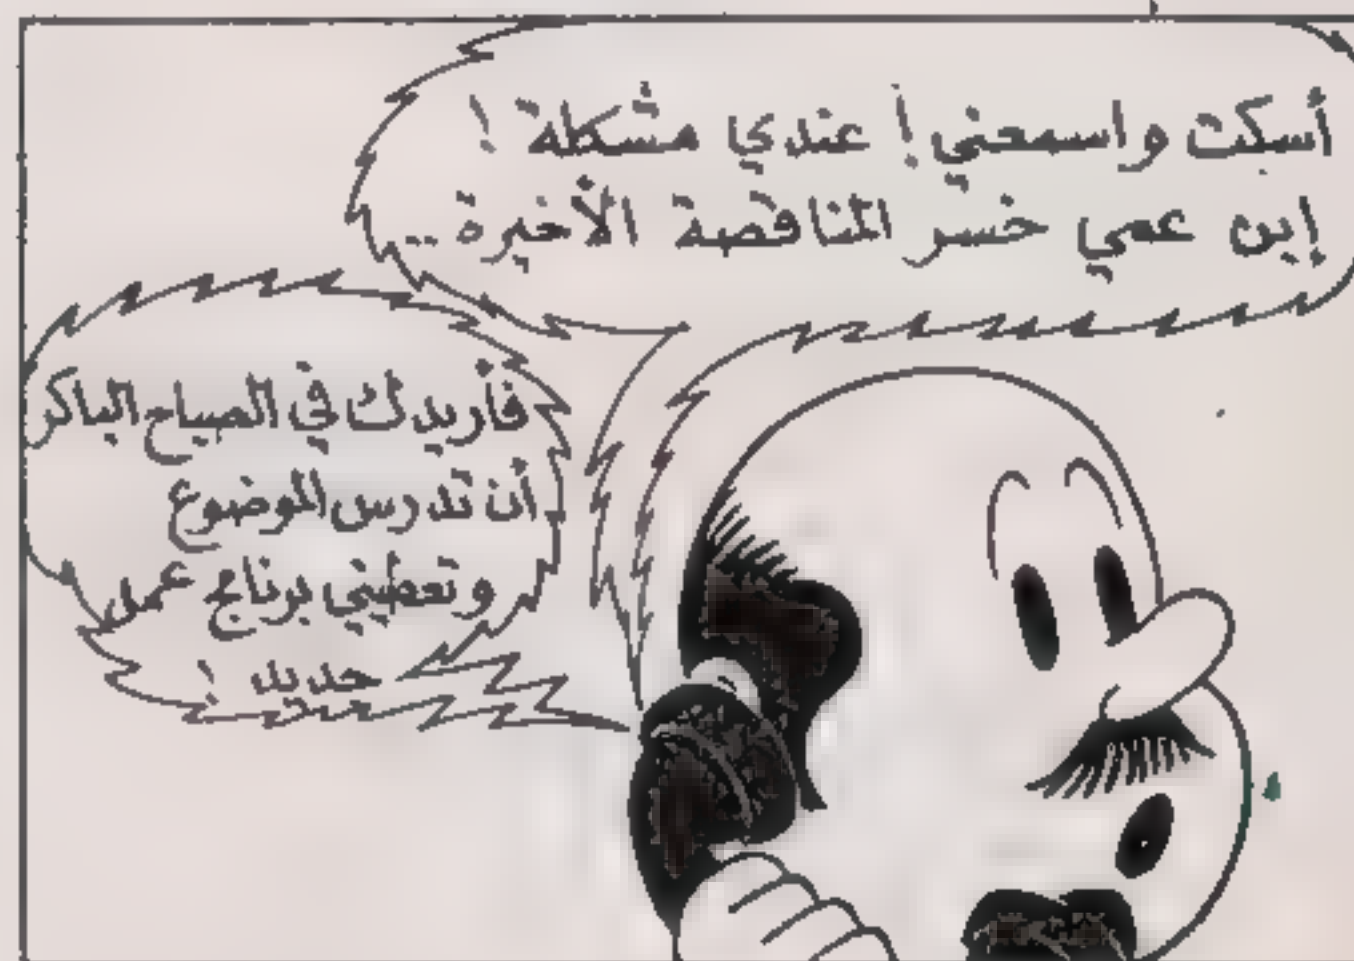 أسكت واسمعني! عندي مشكلة!
إبن عمي خسر المناقصة الأخيرة..
فأريدك في الصباح الباكر
أن تدرس الموضوع
وتعطيني برنامج عمل
جديد!